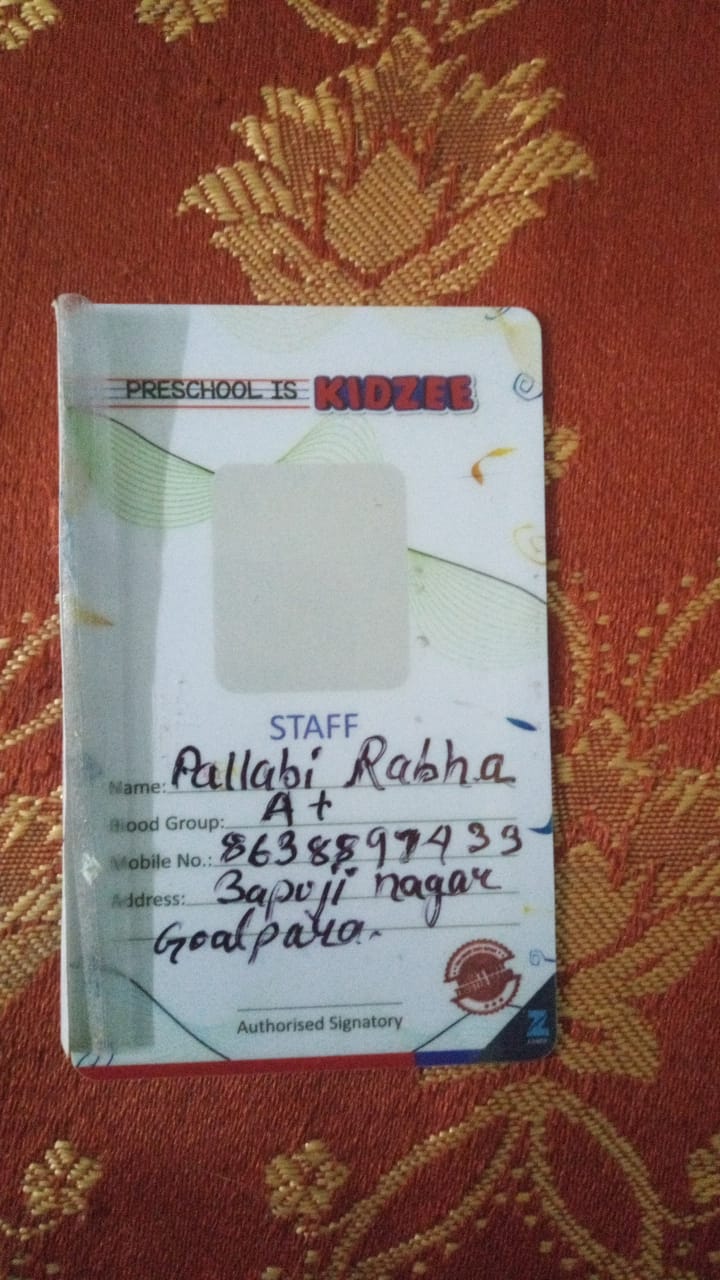 PRESCHOOL IS KIDZEE
STAFF
Name: Pallabi Rabha
Blood Group: A+
Mobile No.: 8638897433
Address: Bapuji nagar
Goalpara.
Authorised Signatory
Z